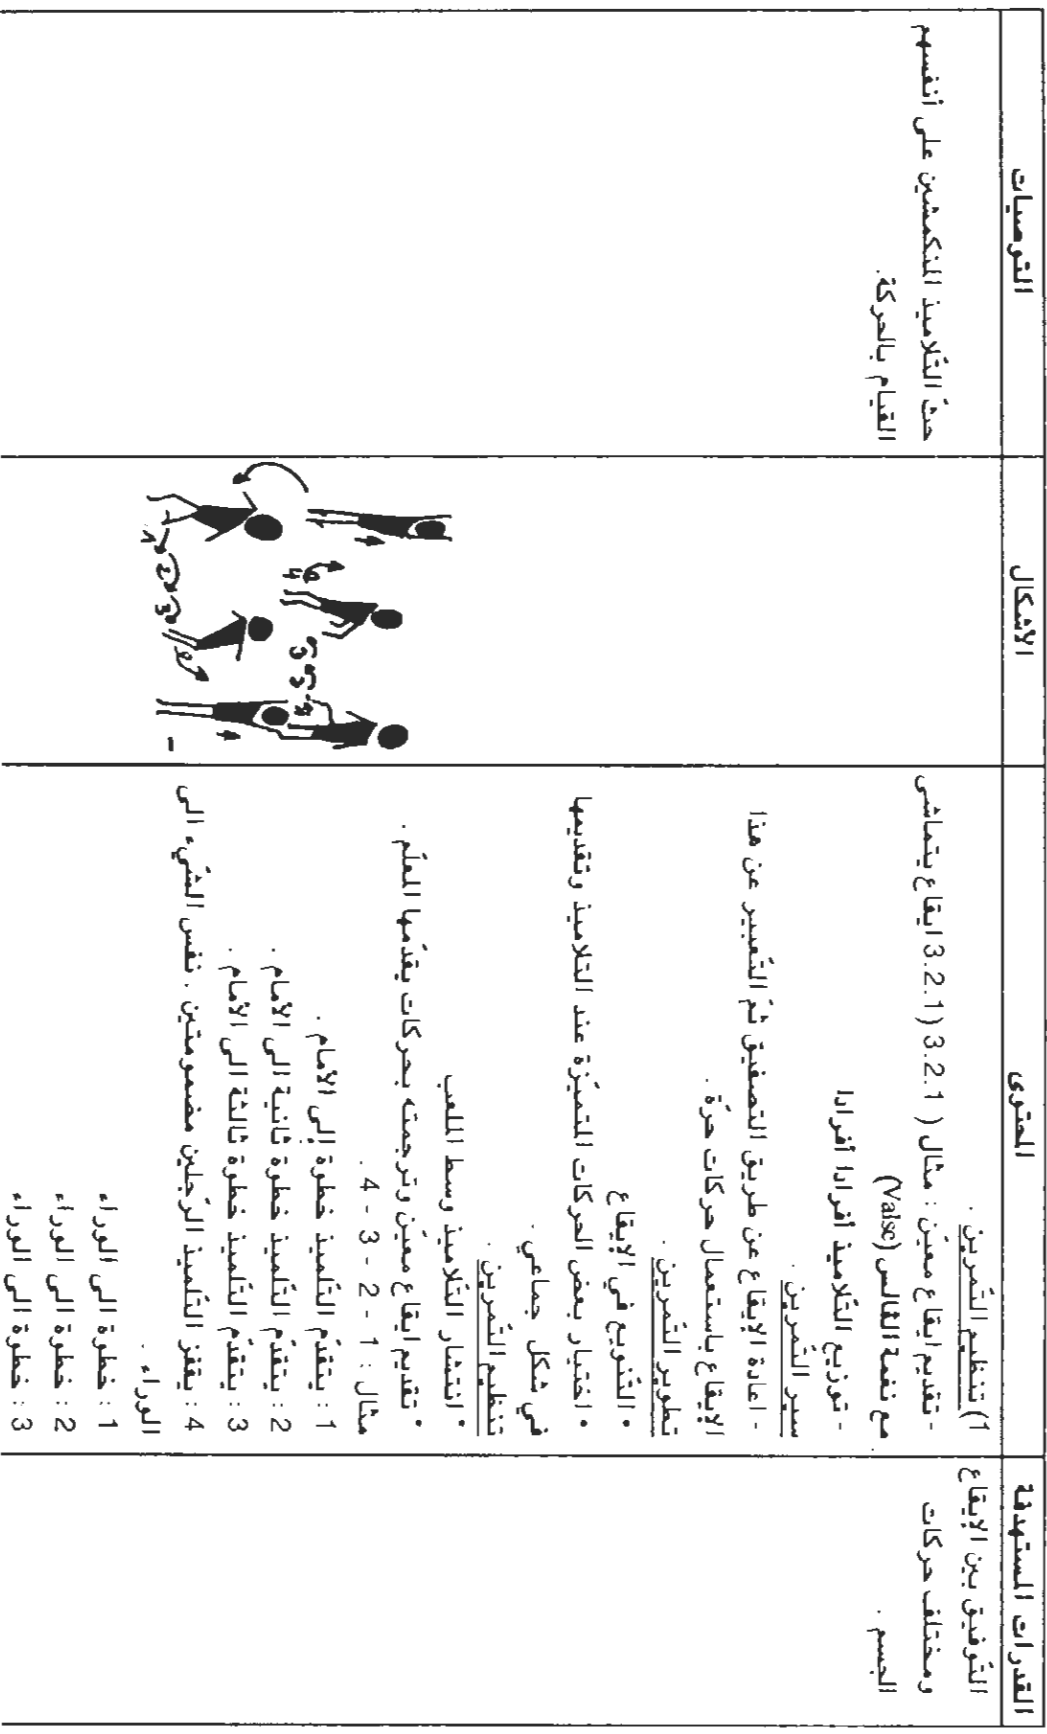 القدرات المستهدفة
التّوفيق بين الإيقاع
ومختلف حركات
الجسم .
المحتوى
1) تنظيم التّمرين .
- تقديم ايقاع معيّن : مثال ( 3.2.1 ( 3.2.1 ايقاع يتماشى
مع نغمة الفالس (Valse)
- توزيع التّلاميذ أفرادا أفرادا
سير التّمرين .
- اعادة الإيقاع عن طريق التصفيق ثمّ التّعبير عن هذا
الإيقاع باستعمال حركات حرّة .
تطوير التّمرين .
• التّنويع في الإيقاع
• اختيار بعض الحركات المتميّزة عند التلاميذ وتقديمها
في شكل جماعي .
تنظيم التّمرين .
• انتشار التّلاميذ وسط الملعب
• تقديم ايقاع معيّن وترجمته بحركات يقدّمها المعلّم .
مثال : 1 - 2 - 3 - 4 .
1 : يتقدّم التّلميذ خطوة إلى الأمام .
2 : يتقدّم التّلميذ خطوة ثانية الى الأمام .
3 : يتقدّم التّلميذ خطوة ثالثة الى الأمام .
4 : يقفز التّلميذ الرّجلين مضمومتين . نفس الشّيء الى
الوراء .
1 : خطوة الى الوراء
2 : خطوة الى الوراء
3 : خطوة الى الوراء
الأشكال
التوصيات
حثّ التّلاميذ المنكمشين على أنفسهم
القيام بالحركة.